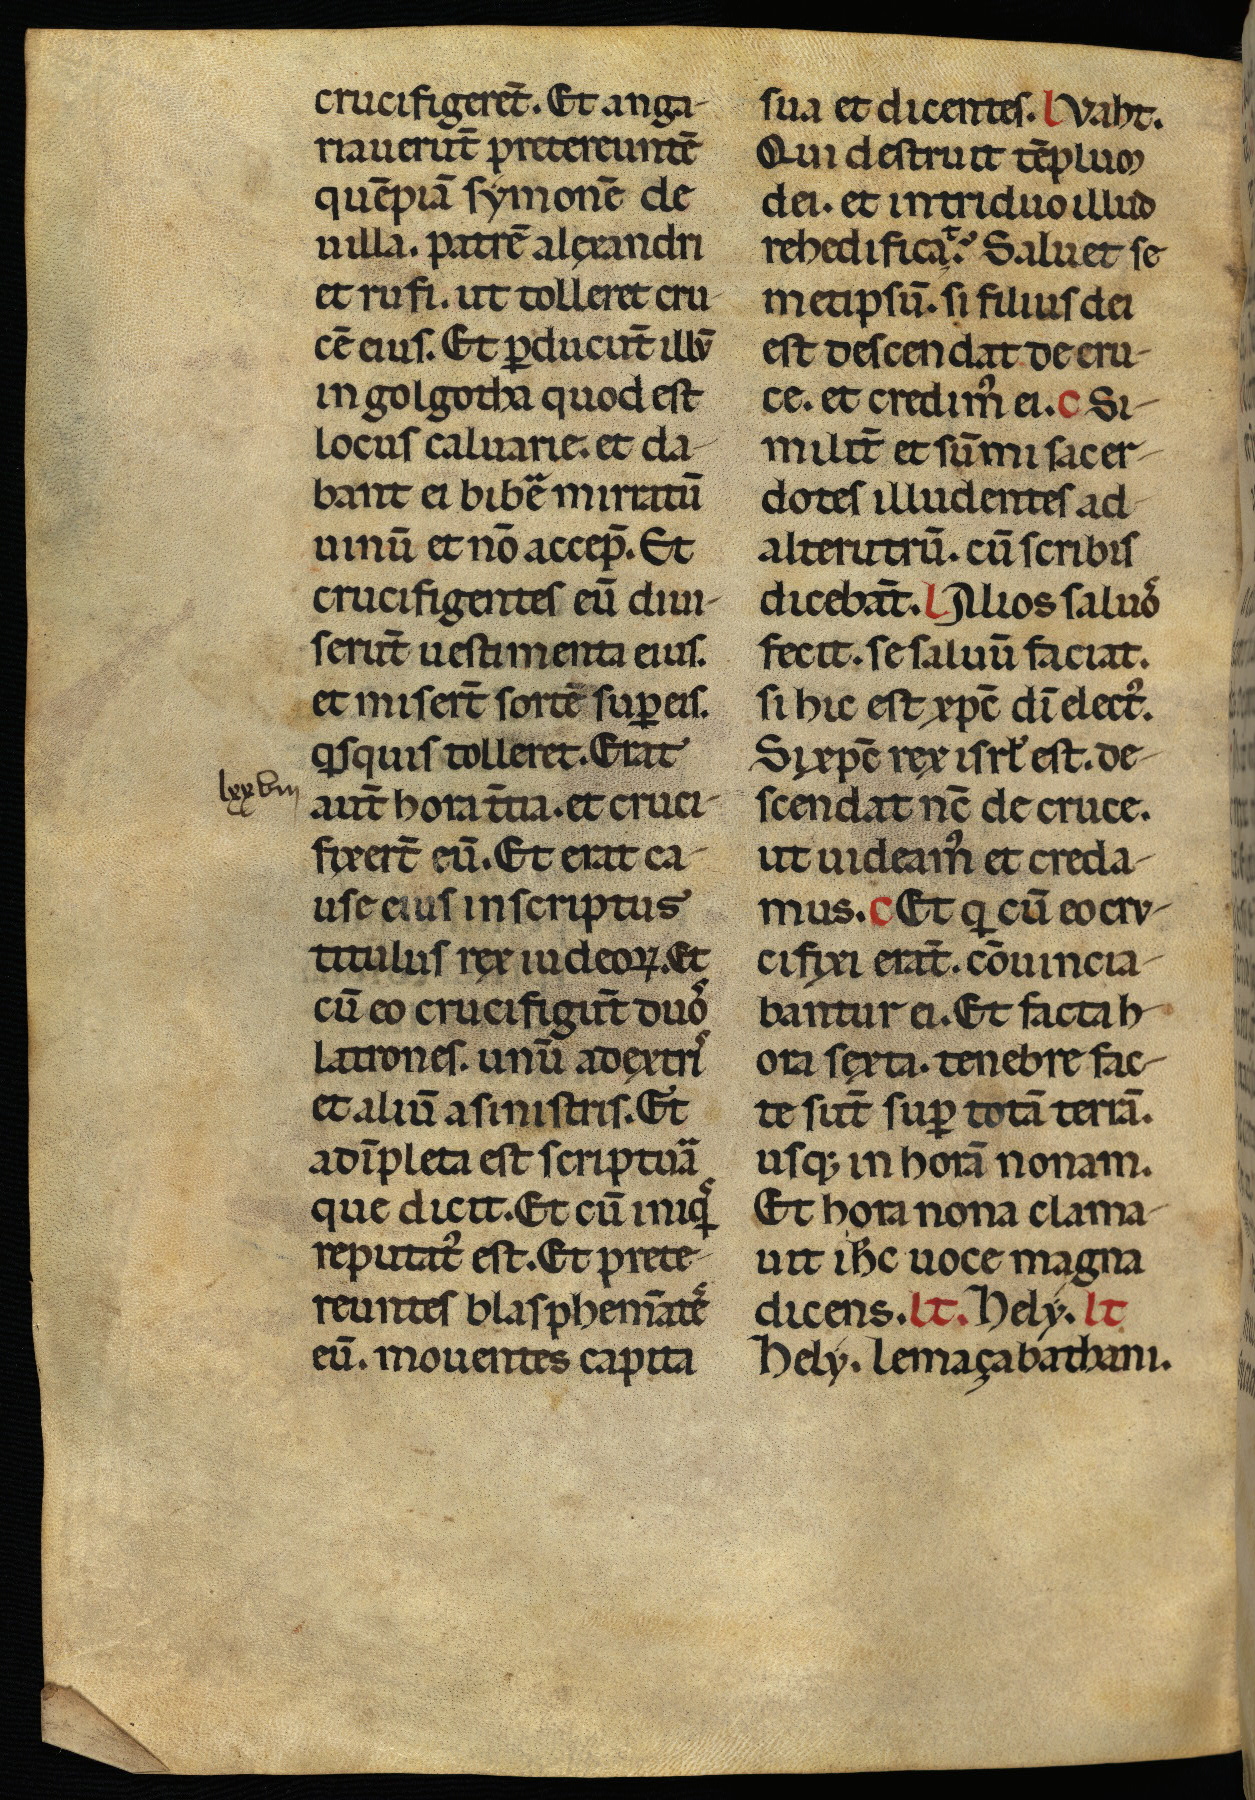 crucifigerēt. Et anga-
riauerūt pretereuntē
quēpiā symonē de
uilla. patrē alexandri
et rufi. ut tolleret cru-
cē eius. Et ꝑducūt illū
in golgotha quod est
locus caluarie. et da-
bant ei bibē mirratū
uinū et nō accep̄. Et
crucifigentes eū diui-
serūt uestimenta eius.
et miserт̄ sortē suꝑ eis.
qͥsquis tolleret. Erat
lxxviii
aut̄ hora t̄tia. et cruci-
fixert̄ eū. Et erat ca-
use eius inscriptus
titulus rex iudeoꝝ. Et
cū eo crucifigūt duoˢ
latrones. unū adextriˢ
et aliū asinistris. Et
adīpleta est scriptuᵃ
que dicit. Et cū iniqͥˢ
reputatꝰ est. Et prete-
reuntes blasphemātēˢ
eū. mouentes capita
sua et dicentes. l Vaht.
Qui destruit tēplum
dei. et intriduo illud
rehedificaᵗ. Saluet se
metipsū. si filius dei
est descendat de cru-
ce. et credimꝰ ei. c Si-
milit̄ et sūmi sacer-
dotes illudentes ad
alterutrū. cū scribis
dicebāt. l Alios saluoˢ
fecit. se saluū faciat.
si hic est xp̄c dī electꝰ.
Si xp̄c rex isrł est. de-
scendat nc̄ de cruce.
ut uideamꝰ et creda-
mus. c Et qͥ cū eo cru-
cifixi erāt. cōuincia-
bantur ei. Et facta h-
ora sexta. tenebre fac-
te sūt suꝑ totā terrā.
usqꝫ in horā nonam.
Et hora nona clama-
uit ihc̄ uoce magna
dicens. lt. Hely. lt
Hely. lemaçabathani.